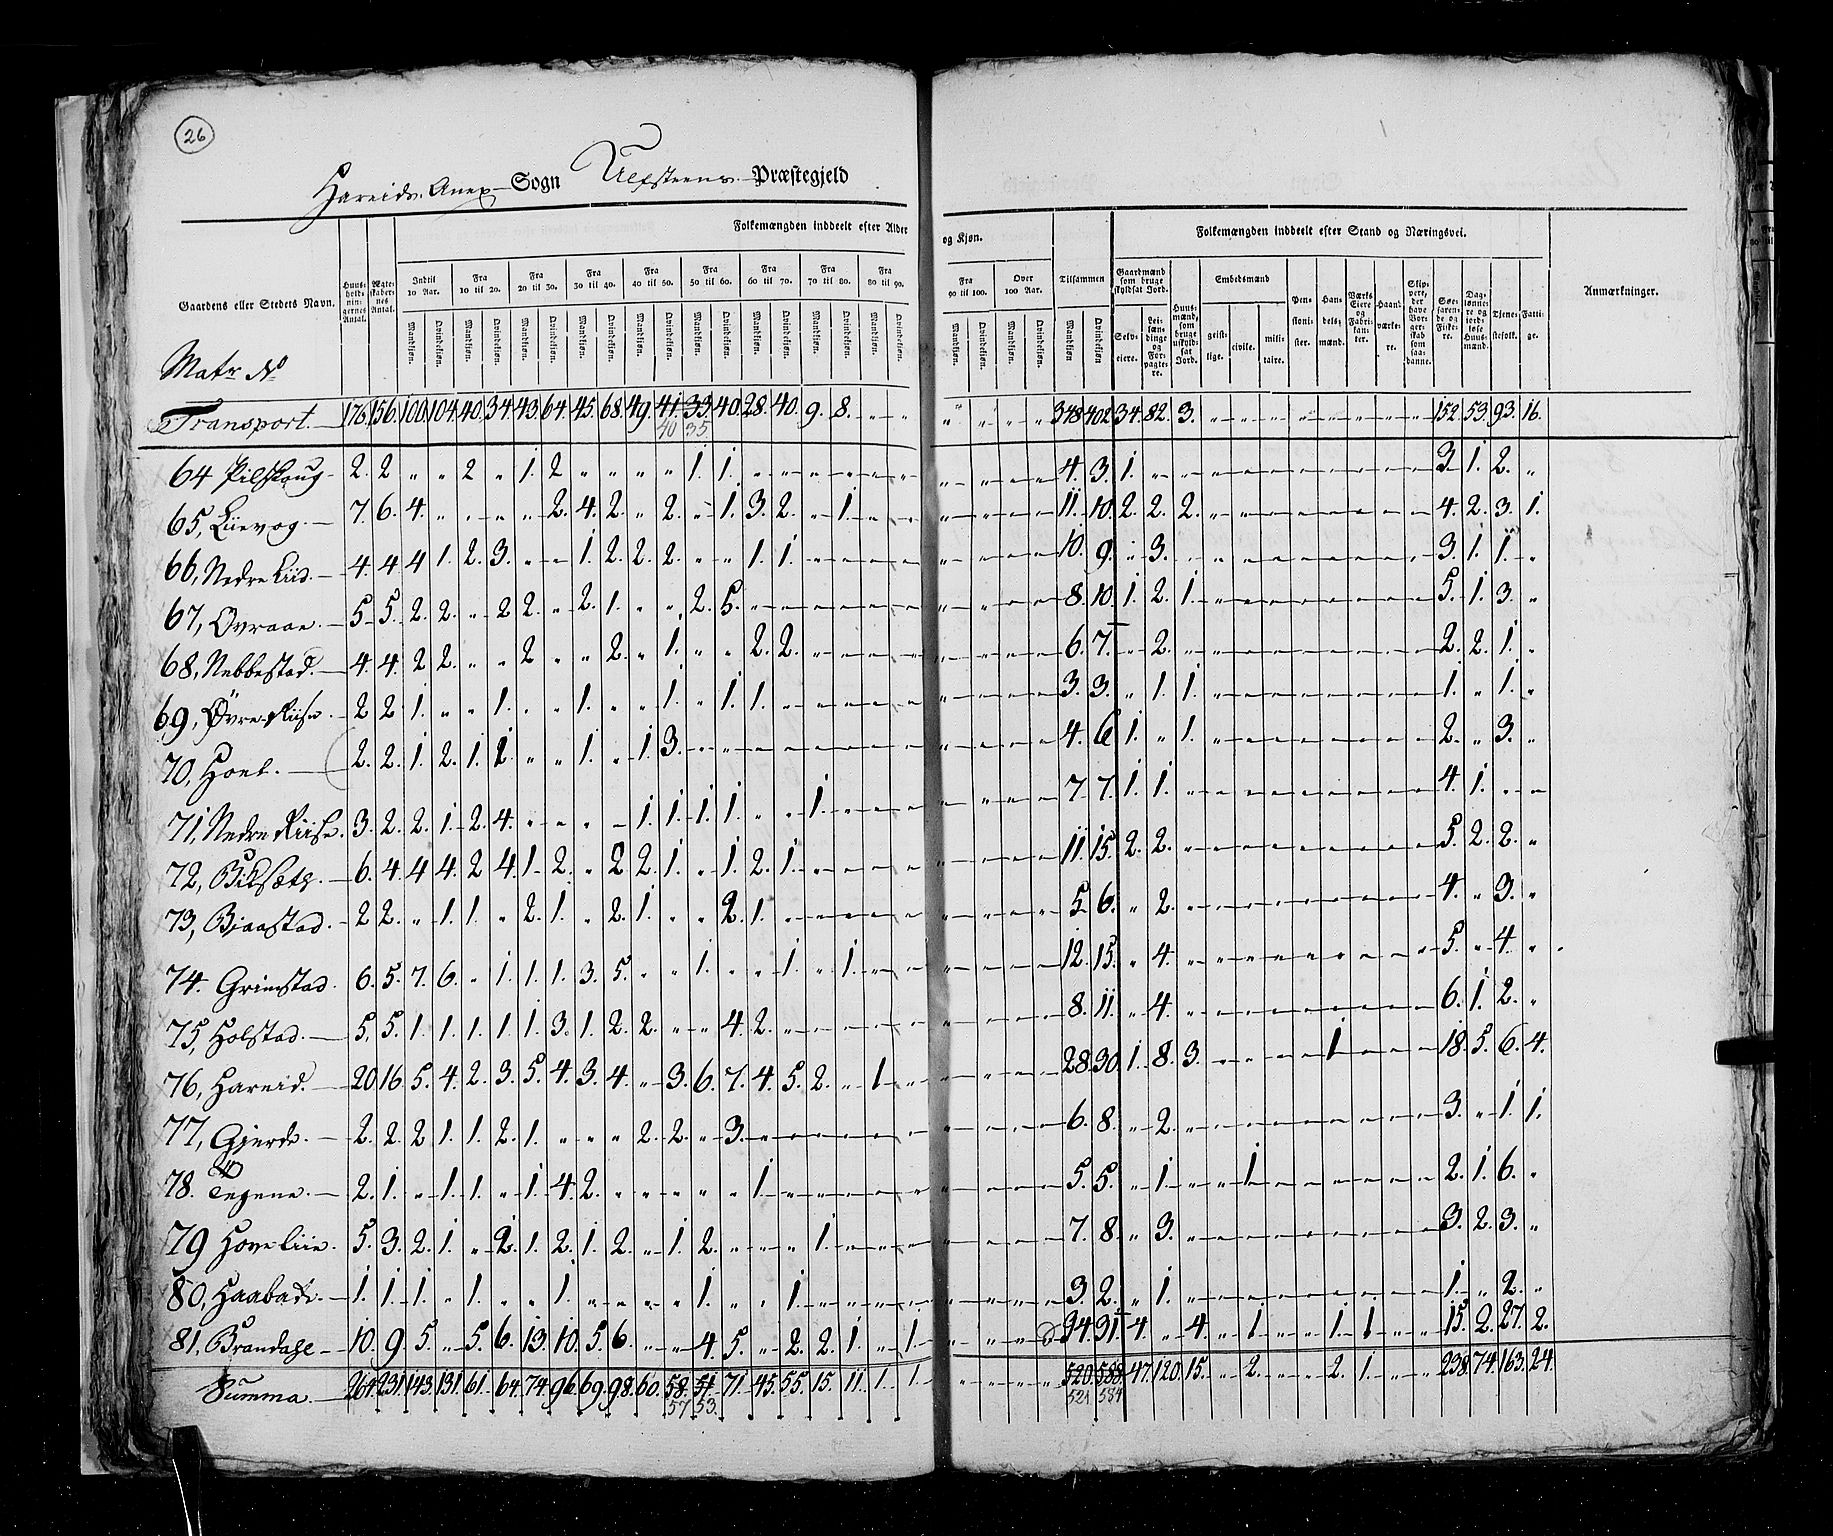 26
Hareids Anex Sogn Ulfsteens Præstegjeld
Folkemængden inddeelt efter Alder og Kjøn. Folkemængden inddeelt efter Stand og Næringsvei.
Gaardens eller Stedets Navn. Huus-holdnin-gernes Antal. Ægte-skaber-nes Antal. Indtil 10 Aar. Fra 10 til 20. Fra 20 til 30. Fra 30 til 40. Fra 40 til 50. Fra 50 til 60. Fra 60 til 70. Fra 70 til 80. Fra 80 til 90. Fra 90 til 100. Over 100 Aar. Tilsammen Gaardmænd som bruge skyldsat Jord. Huus-mænd, som bruge uskyld-sat Jord. Embedsmænd Pen-sioni-ster. Han-dels-mænd. Værks Eiere og Fabri-kan-ter. Haand-værke-re. Slip-pere, der have Bor-ger-skab som saa-danne. Søe-faren-de og Fiske-re. Dag-lønne-re og jord-løse Huus-mænd. Tjene-stefolk. Fatti-ge. Anmærkninger.
Mandkjøn. Qvindekjøn. Mandkjøn. Qvindekjøn. Mandkjøn. Qvindekjøn. Mandkjøn. Qvindekjøn. Mandkjøn. Qvindekjøn. Mandkjøn. Qvindekjøn. Mandkjøn. Qvindekjøn. Mandkjøn. Qvindekjøn. Mandkjøn. Qvindekjøn. Mandkjøn. Qvindekjøn. Mandkjøn. Qvindekjøn. Mandkjøn Qvindekjøn Selv-eiere. Lei-lændinge og For-pagte-re. geist-lige. civile. mili-taire.
Matr No
Transport. 176. 156. 100. 104. 40. 34. 43. 64. 45. 68. 49. 41. 33. 40. 28. 40. 9. 8. „ „ „ „ „ „ 348 402 34. 82. 3. „ „ „ „ „ „ „ „ 152. 53. 93. 16.
40 35.
64 Pilskoug 2. 2 „ „ 2 „ 1. 2 „ „ „ „ 1. 1. „ „ „ „ „ „ „ „ „ „ 4. 3. 1. „ „ „ „ „ „ „ „ „ „ 3. 1. 2. „
65, Liievog. 7. 6. 4. „ „ „ „ 2. 4. 2. „ 2. „ 1. 3. 2. „ 1. „ „ „ „ „ „ 11. 10. 2. 2. 2. „ „ „ „ „ „ „ „ 4. 2. 3. 1.
66, Nedre Liid. 4. 4 4 1. 2. 3. „ „ 1. 2. 2. 2. „ „ 1. 1. „ „ „ „ „ „ „ „ 10. 9. „ 3. „ „ „ „ „ „ „ „ „ 3. 1. 1. „
67, Ovraae. 5. 5. 2. 2. „ 2 2. „ 2. 1. „ „ 2. 5. „ „ „ „ „ „ „ „ „ „ 8. 10. 1. 2. 1. „ „ „ „ „ „ „ „ 5. 1. 3. „
68, Nebbestad. 4. 4. 2 2. „ „ 2 „ „ 2. „ 1. „ „ 2. 2. „ „ „ „ „ „ „ „ 6. 7. „ 2. „ „ „ „ „ „ „ „ „ 2. 2. 1. „
69, Øvre Riise. 2 2 1. „ „ 1. „ „ 1. „ „ 1. „ 1. 1. „ „ „ „ „ „ „ „ „ 3. 3. „ 1. 1. „ „ „ „ „ „ „ „ 1. „ 1. „
70, Hoel. 2. 2. 1. 2. 1. 1. „ „ 1. „ 1. 3. „ „ „ „ „ „ „ „ „ „ „ „ 4. 6 1. „ 1. „ „ „ „ „ „ „ „ 2. „ 3. „
71, Nedre Riise. 3. 2. 2. 1. 2. 4. „ „ „ „ 1. 1. 1. 1. „ „ 1. „ „ „ „ „ „ „ 7. 7. 1. 1. „ „ „ „ „ „ „ „ „ 4. 1. „ „
72, Bilsæth. 6. 4. 4 4. 2 4. 1. 2. „ 2 2. 1. „ 1. 2. 1. „ „ „ „ „ „ „ „ 11. 15. 2. 2. „ „ „ „ „ „ „ „ „ 5. 2. 2. „
73, Bjaastad. 2 2. „ 1. 1. „ 2. 1. „ 2. 1. „ „ 2. 1. „ „ „ „ „ „ „ „ „ 5. 6. „ 2. „ „ „ „ „ „ „ „ „ 4. „ 3. „
74. Grimstad. 6. 5. 7. 6. „ 1. 1. 1. 3. 5. „ „ 1. „ „ 1. „ 1. „ „ „ „ „ „ 12. 15. „ 4. „ „ „ „ „ „ „ „ „ 5. „ 4. „
75, Holstad. 5. 5. 1. 1. 1. 1. 1. 3. 1. 2. 2. „ „ 4. 2. „ „ „ „ „ „ „ „ „ 8. 11. „ 4. „ „ „ „ „ „ „ „ „ 6. 1. 2. „
76, Hareid. 20. 16. 5. 4. 2. 3. 5. 4. 3. 4. „ 3. 6. 7. 4. 5. 2. „ 1. „ „ „ „ „ 28. 30. 1. 8. 3. „ „ „ „ 1 „ „ „ 18. 5. 6. 4.
77, Gjerde. 2. 2. 2 1. 1. 2. 1. „ „ „ 2. 2. „ 3. „ „ „ „ „ „ „ „ „ „ 6. 8. „ 2. „ „ „ „ „ „ „ „ „ 3. „ 1. 1.
78. Teigene. 2. 1. „ 1. 1. „ 1. 4. 2. „ „ „ „ „ 1. „ „ „ „ „ „ „ „ „ 5. 5. „ 1. „ „ 1. „ „ „ „ „ „ 2. 1. 6. „
79 Hove Liie. 5. 3. 2. 1. „ 2. 1. 2. 1. 2. „ 1. 2. „ „ „ 1. „ „ „ „ „ „ „ 7. 8. „ 3. „ „ „ „ „ „ „ „ „ 3. 2. 3. „
80, Haabakke. 1. 1. 1. „ 1. „ „ 1. „ „ „ „ 1. „ „ 1. „ „ „ „ „ „ „ „ 3. 2. „ 1. „ „ „ „ „ „ „ „ „ 1. „ 2. „
81, Brandahl 10. 9 5. „ 5. 6. 13. 10. 5. 6. „ „ 4. 5. „ 2. 2. 1. „ 1. „ „ „ 34. 31. 4. „ 4. „ 1. „ „ 1. 1. „ „ 15. 2. 27. 2.
Summa. 264. 231. 143. 131. 61. 64. 74. 96. 69. 98. 60. 58. 51. 71. 45. 55. 15. 11. 1. 1. „ „ „ „ 520. 588. 47. 120. 15. „ 2. „ „ 2. 1. „ „ 238. 74. 163. 24.
57. 53. 521 584